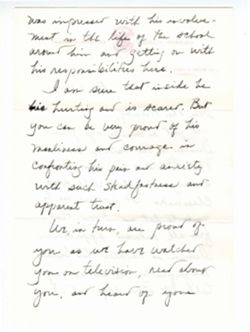 was impressed with his involve-
ment in the life of the school
around him and getting on with
his responsibilities here.
I am sure that inside he
is hurting and is scared. But
you can be very proud of his
manliness and courage in
confronting his pain and anxiety
with such steadfastness and
apparent trust.
We, in turn, are proud of
you as we have watched
you on television, read about
you, and heard of your